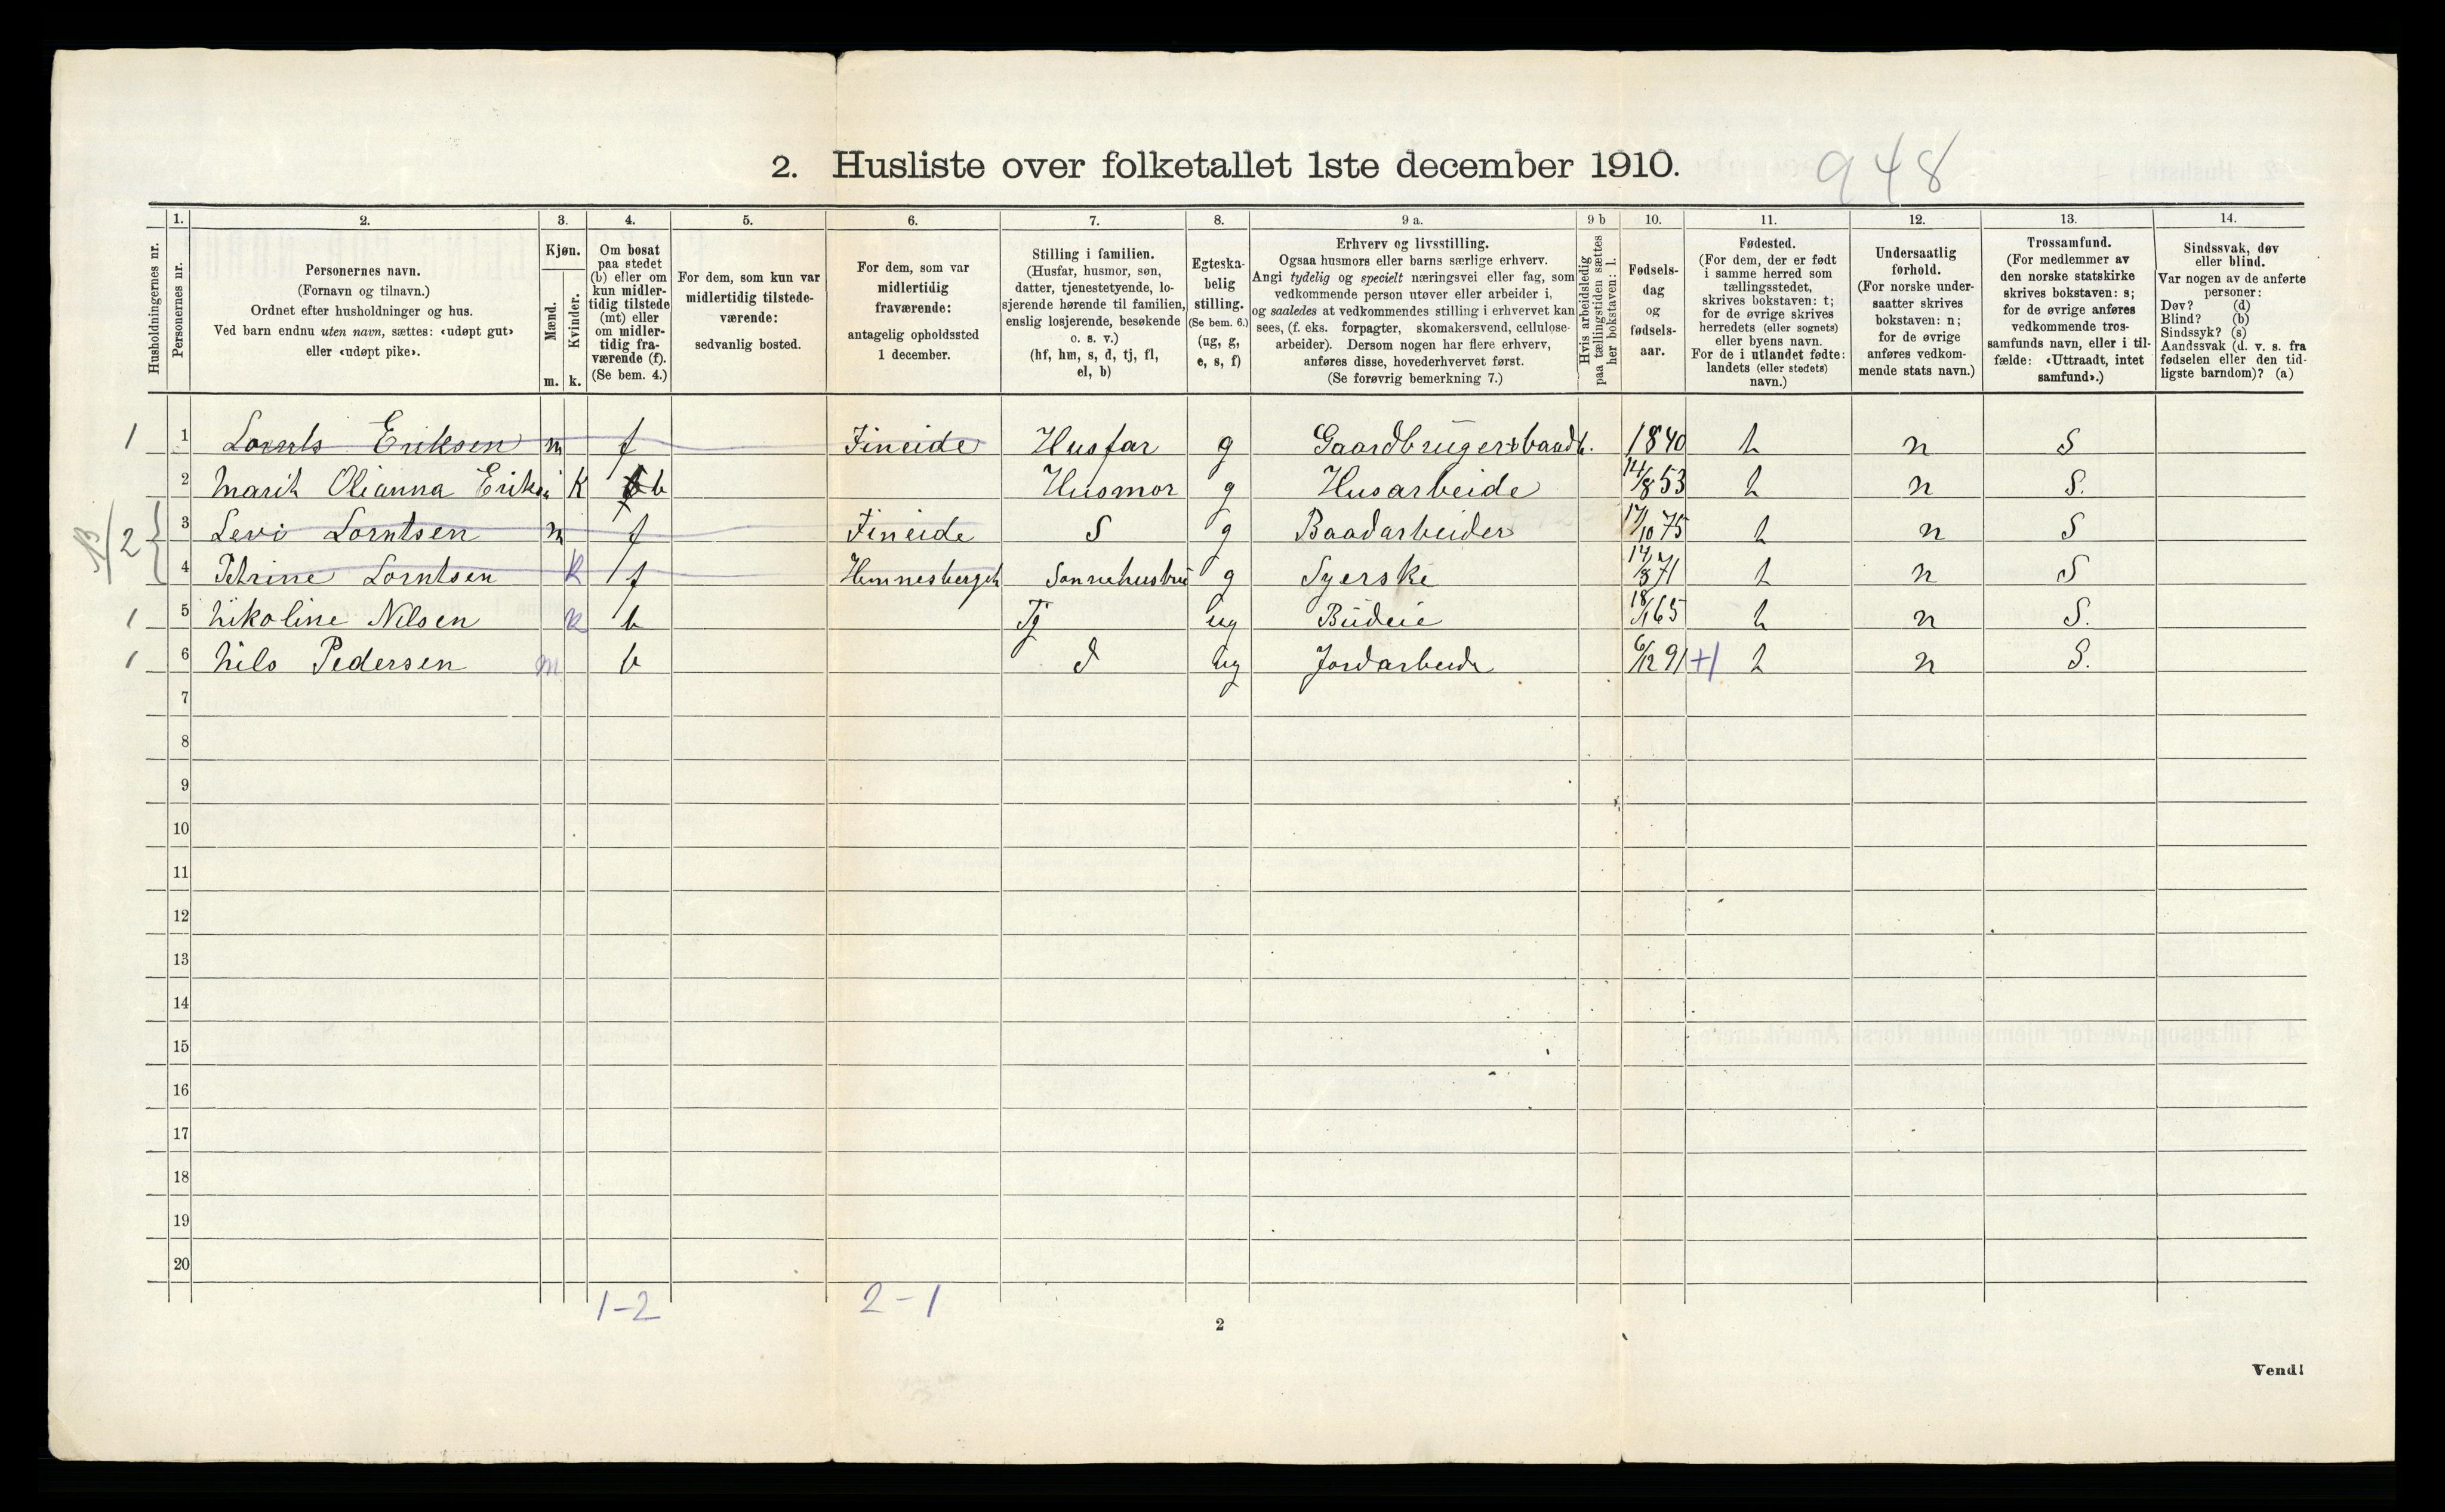 2. Husliste over folketallet 1ste december 1910. 948
Husholdningernes nr.
1. Personernes nr.
2. Personernes navn.
(Fornavn og tilnavn.)
Ordnet efter husholdninger og hus.
Ved barn endnu uten navn, sættes: «udøpt gut»
eller «udøpt pike».
3. Kjøn.
Mænd. Kvinder.
m. k.
4. Om bosat
paa stedet
(b) eller om
kun midler-
tidig tilstede
(mt) eller
om midler-
tidig fra-
værende (f).
(Se bem. 4.)
5. For dem, som kun var
midlertidig tilstede-
værende:
sedvanlig bosted.
6. For dem, som var
midlertidig
fraværende:
antagelig opholdssted
1 december.
7. Stilling i familien.
(Husfar, husmor, søn,
datter, tjenestetyende, lo-
sjerende hørende til familien,
enslig losjerende, besøkende
o. s. v.)
(hf, hm, s, d, tj, fl,
el, b)
8. Egteska-
belig
stilling.
(Se bem. 6.)
(ug, g,
e, s, f)
9 a. Erhverv og livsstilling.
Ogsaa husmors eller barns særlige erhverv.
Angi tydelig og specielt næringsvei eller fag, som
vedkommende person utøver eller arbeider i,
og saaledes at vedkommendes stilling i erhvervet kan
sees, (f. eks. forpagter, skomakersvend, cellulose-
arbeider). Dersom nogen har flere erhverv,
anføres disse, hovederhvervet først.
(Se forøvrig bemerkning 7.)
9 b Hvis arbeidsledig
paa tællingstiden sættes
her bokstaven: l.
10. Fødsels-
dag
og
fødsels-
aar.
11. Fødested.
(For dem, der er født
i samme herred som
tællingsstedet,
skrives bokstaven: t;
for de øvrige skrives
herredets (eller sognets)
eller byens navn.
For de i utlandet fødte:
landets (eller stedets)
navn.)
12. Undersaatlig
forhold.
(For norske under-
saatter skrives
bokstaven: n;
for de øvrige
anføres vedkom-
mende stats navn.)
13. Trossamfund.
(For medlemmer av
den norske statskirke
skrives bokstaven: s;
for de øvrige anføres
vedkommende tros-
samfunds navn, eller i til-
fælde: «Uttraadt, intet
samfund».)
14. Sindssvak, døv
eller blind.
Var nogen av de anførte
personer:
Døv? (d)
Blind? (b)
Sindssyk? (s)
Aandssvak (d. v. s. fra
fødselen eller den tid-
ligste barndom)? (a)
1 1 Lornts Eriksen m f Fineide Husfar g Gaardbruger & baadb. 1840 t n S
2 Marit Olianna Eriks K b Husmor g Husarbeide 14/8 53 t n S.
2 3 Levi Lorntsen m f Fineide S g Baadarbeider 17/10 75 t n S
4 Petrine Lorntsen k f Hemnesberget Sønnehustru g Syerske 14/8 71 t n S
1 5 Nikoline Nilsen k b Tj ug Budeie 18/1 65 t n S.
1 6 Nils Pedersen m b d ug Jordarbeide 6/12 91 +1 t n S.
7
8
9
10
11
12
13
14
15
16
17
18
19
20
1-2 2-1
2
Vend!